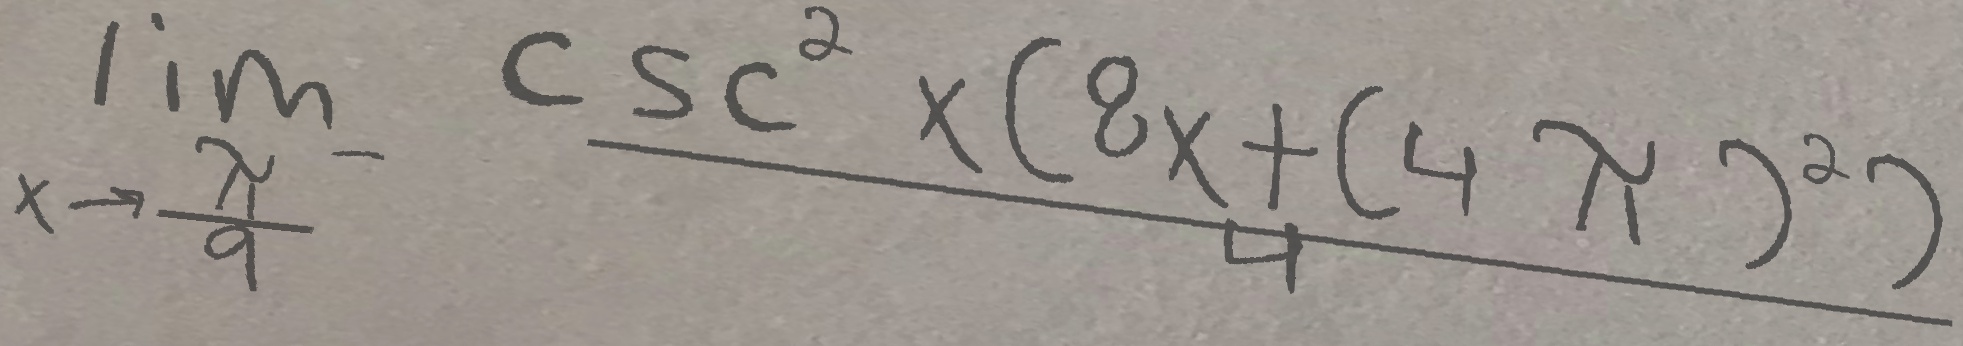 lim x→π/9⁻ csc² x(8x+(4π)²)/4